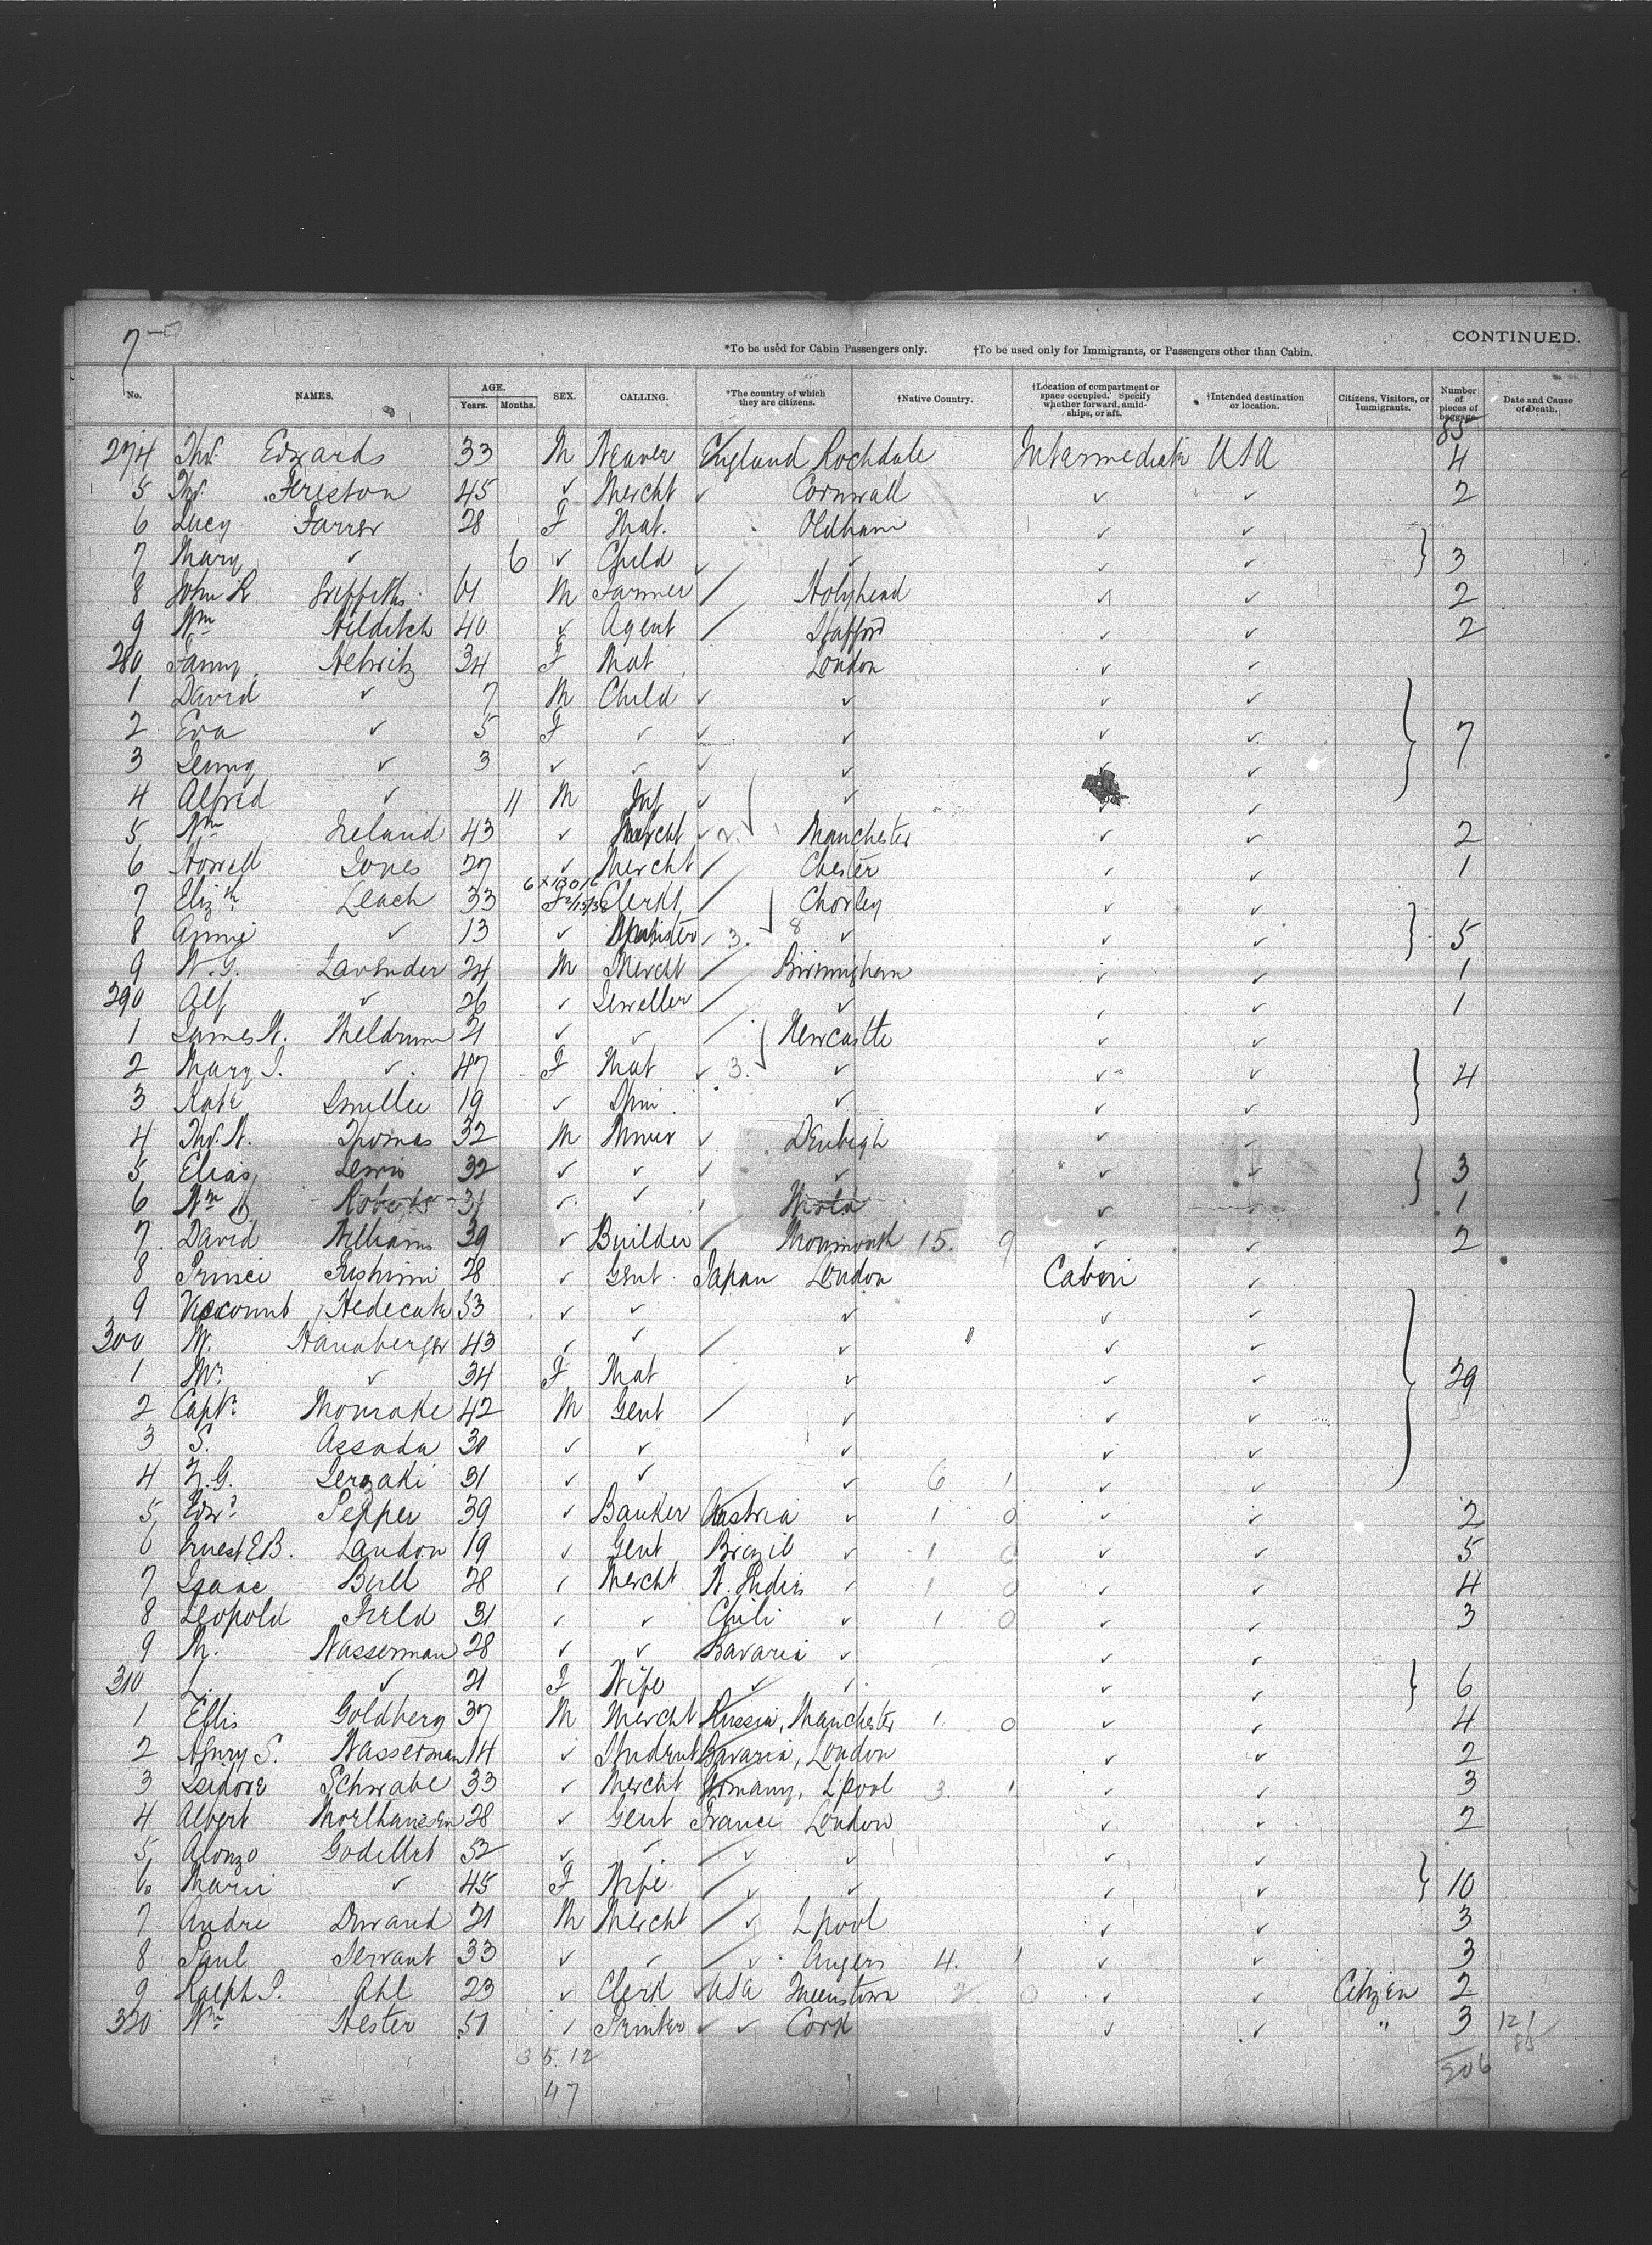 7
CONTINUED.
*To be used for Cabin Passengers only. †To be used only for Immigrants, or Passengers other than Cabin.
No. NAMES. AGE. Years. Months. SEX. CALLING. *The country of which they are citizens. †Native Country. †Location of compartment or space occupied. Specify whether forward, amidships, or aft. †Intended destination or location. Citizens, Visitors, or Immigrants. Number of pieces of baggage. Date and Cause of Death.
85
274 Thos. Edwards 33 M Weaver England Rochdale Intermediate USA 4
5 Thos. Friston 45 ✓ Mercht ✓ Cornwall ✓ ✓ 2
6 Lucy Farrer 28 F Mat. Oldham ✓ ✓
7 Mary ✓ 6 ✓ Child ✓ ✓ ✓ ✓ 3
8 John R Griffiths 61 M Farmer / Holyhead ✓ ✓ 2
9 Wm Hilditch 40 ✓ Agent / Stafford ✓ ✓ 2
280 Fanny Hewitz 34 F Mat London ✓ ✓
1 David ✓ 7 M Child ✓ ✓ ✓ ✓
2 Eva ✓ 5 F ✓ ✓ ✓ ✓ ✓ 7
3 Jenny ✓ 3 ✓ ✓ ✓ ✓ ✓ ✓
4 Alfred ✓ 11 M Inf ✓ ✓ ✓ ✓
5 Wm Ireland 43 ✓ Mercht ✓ 2. Manchester ✓ ✓ 2
6 Howell Jones 27 ✓ Mercht / Chester ✓ ✓ 1
7 Elizth Leach 33 F Clerk / Chorley ✓ ✓
8 Annie ✓ 13 ✓ Spinster ✓ 3. 8 ✓ ✓ ✓ 5
9 W.G. Lavender 24 M Mercht / Birmingham ✓ ✓ 1
290 Alf ✓ 26 ✓ Jeweller / ✓ ✓ ✓ 1
1 James W. Meldrum 21 ✓ ✓ / Newcastle ✓ ✓
2 Mary J. ✓ 47 F Mat ✓ 3. ✓ ✓ ✓ 4
3 Kate Smellie 19 ✓ Spin. ✓ ✓ ✓
4 Thos. W. Thomas 32 M Miner ✓ Denbigh ✓ ✓
5 Elias Lewis 32 ✓ ✓ ✓ ✓ ✓ ✓ 3
6 Wm Roberts 31 ✓ ✓ ✓ 1
7 David Williams 39 ✓ Builder / Monmouth 15. 9 ✓ ✓ 2
8 Prince Fushimi 28 ✓ Gent Japan London Cabin ✓
9 Viscount Hedecata 53 ✓ ✓ ✓ ✓ ✓
300 W. Hannberger 43 ✓ ✓ / ✓ ✓ ✓
1 Mrs ✓ 34 F Mat ✓ ✓ ✓ 29
2 Captn. Mourake 42 M Gent / ✓ ✓ ✓
3 S. Assada 30 ✓ ✓ ✓ ✓ ✓
4 Z.G. Serzaki 31 ✓ ✓ ✓ 6 1 ✓ ✓
5 Edwd. Pepper 39 ✓ Banker Austria ✓ 1 0 ✓ ✓ 2
6 Ernest E.B. Landon 19 ✓ Gent Brazil ✓ 1 0 ✓ ✓ 5
7 Isaac Bull 28 ✓ Mercht W. Indies ✓ 1 0 ✓ ✓ 4
8 Leopold Field 31 ✓ ✓ Chili ✓ 1 0 ✓ ✓ 3
9 M. Wasserman 28 ✓ ✓ Bavaria ✓ ✓ ✓
310 L. ✓ 21 F Wife ✓ ✓ ✓ ✓ 6
1 Ellis Goldberg 37 M Mercht Russia, Manchester 1. 0 ✓ ✓ 4
2 Henry S. Wasserman 14 ✓ Student Bavaria, London ✓ ✓ 2
3 Isidore Schwabe 33 ✓ Mercht Germany, Lpool 3. 1 ✓ ✓ 3
4 Albert Moelhausen 28 ✓ Gent France London ✓ ✓ 2
5 Alonzo Godillet 52 ✓ ✓ / ✓ ✓ ✓ ✓
6 Marie ✓ 45 F Wife / ✓ ✓ ✓ ✓ 10
7 Andre Durand 21 M Mercht / ✓ Lpool ✓ ✓ 3
8 Paul Servant 33 ✓ ✓ / ✓ Angers 4. 1 ✓ ✓ 3
9 Ralph P. Ahl 23 ✓ Clerk USA Queenstown 2 0 ✓ ✓ Citizen 2
320 Wm. Hester 51 ✓ Printer ✓ ✓ Cork ✓ ✓ " 3 121
35.12 85
47 206